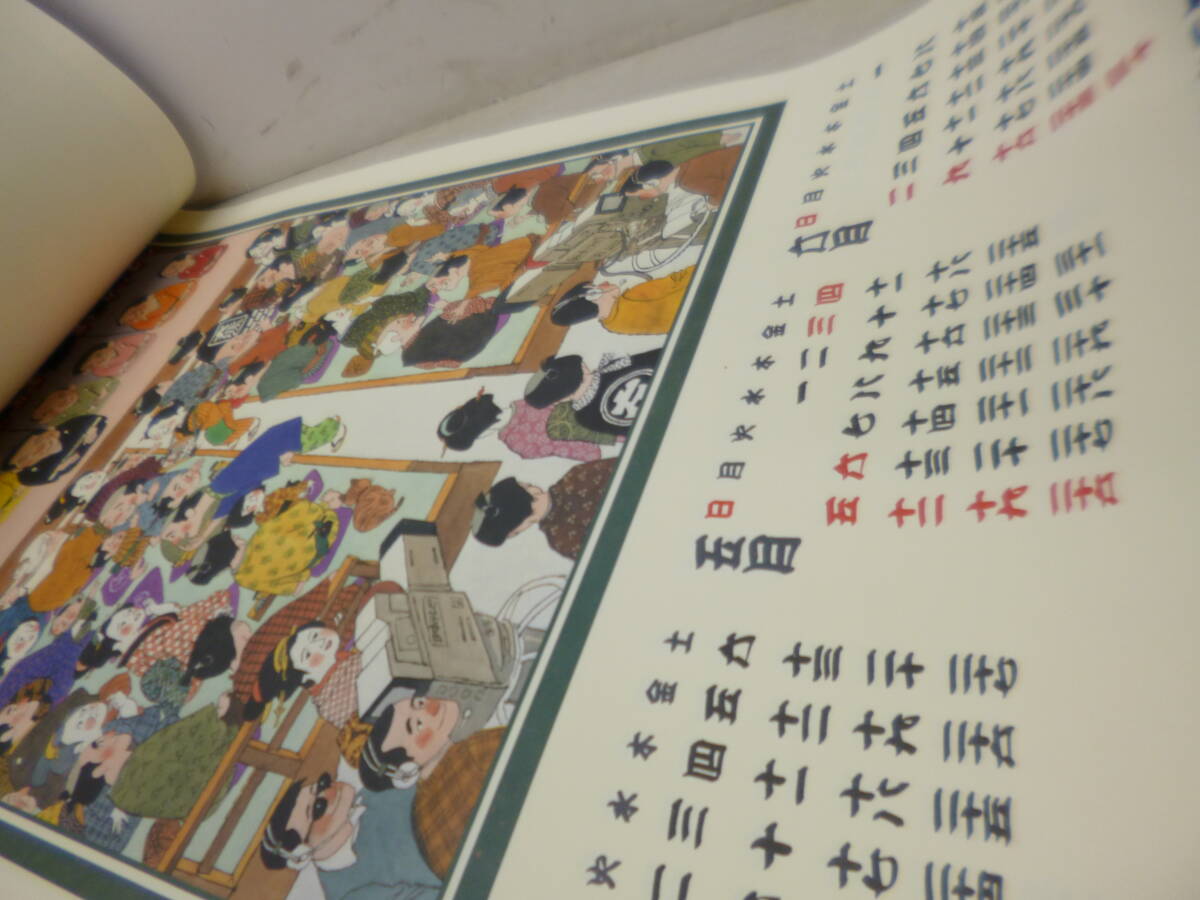 火 水 木 金 土
二 三 四 五 六
十 十一 十二 十三
十七 十八 十九 二十
二十四 二十五 二十六 二十七
五月
日 月 火 水 木 金 土
一 二 三 四
五 六 七 八 九 十 十一
十二 十三 十四 十五 十六 十七 十八
十九 二十 二十一 二十二 二十三 二十四 二十五
二十六 二十七 二十八 二十九 三十 三十一
六月
日 月 火 水 木 金 土
一
二 三 四 五 六 七 八
九 十 十一 十二 十三 十四
十六 十七 十八 十九 二十
二十三 二十四 二十五
三十